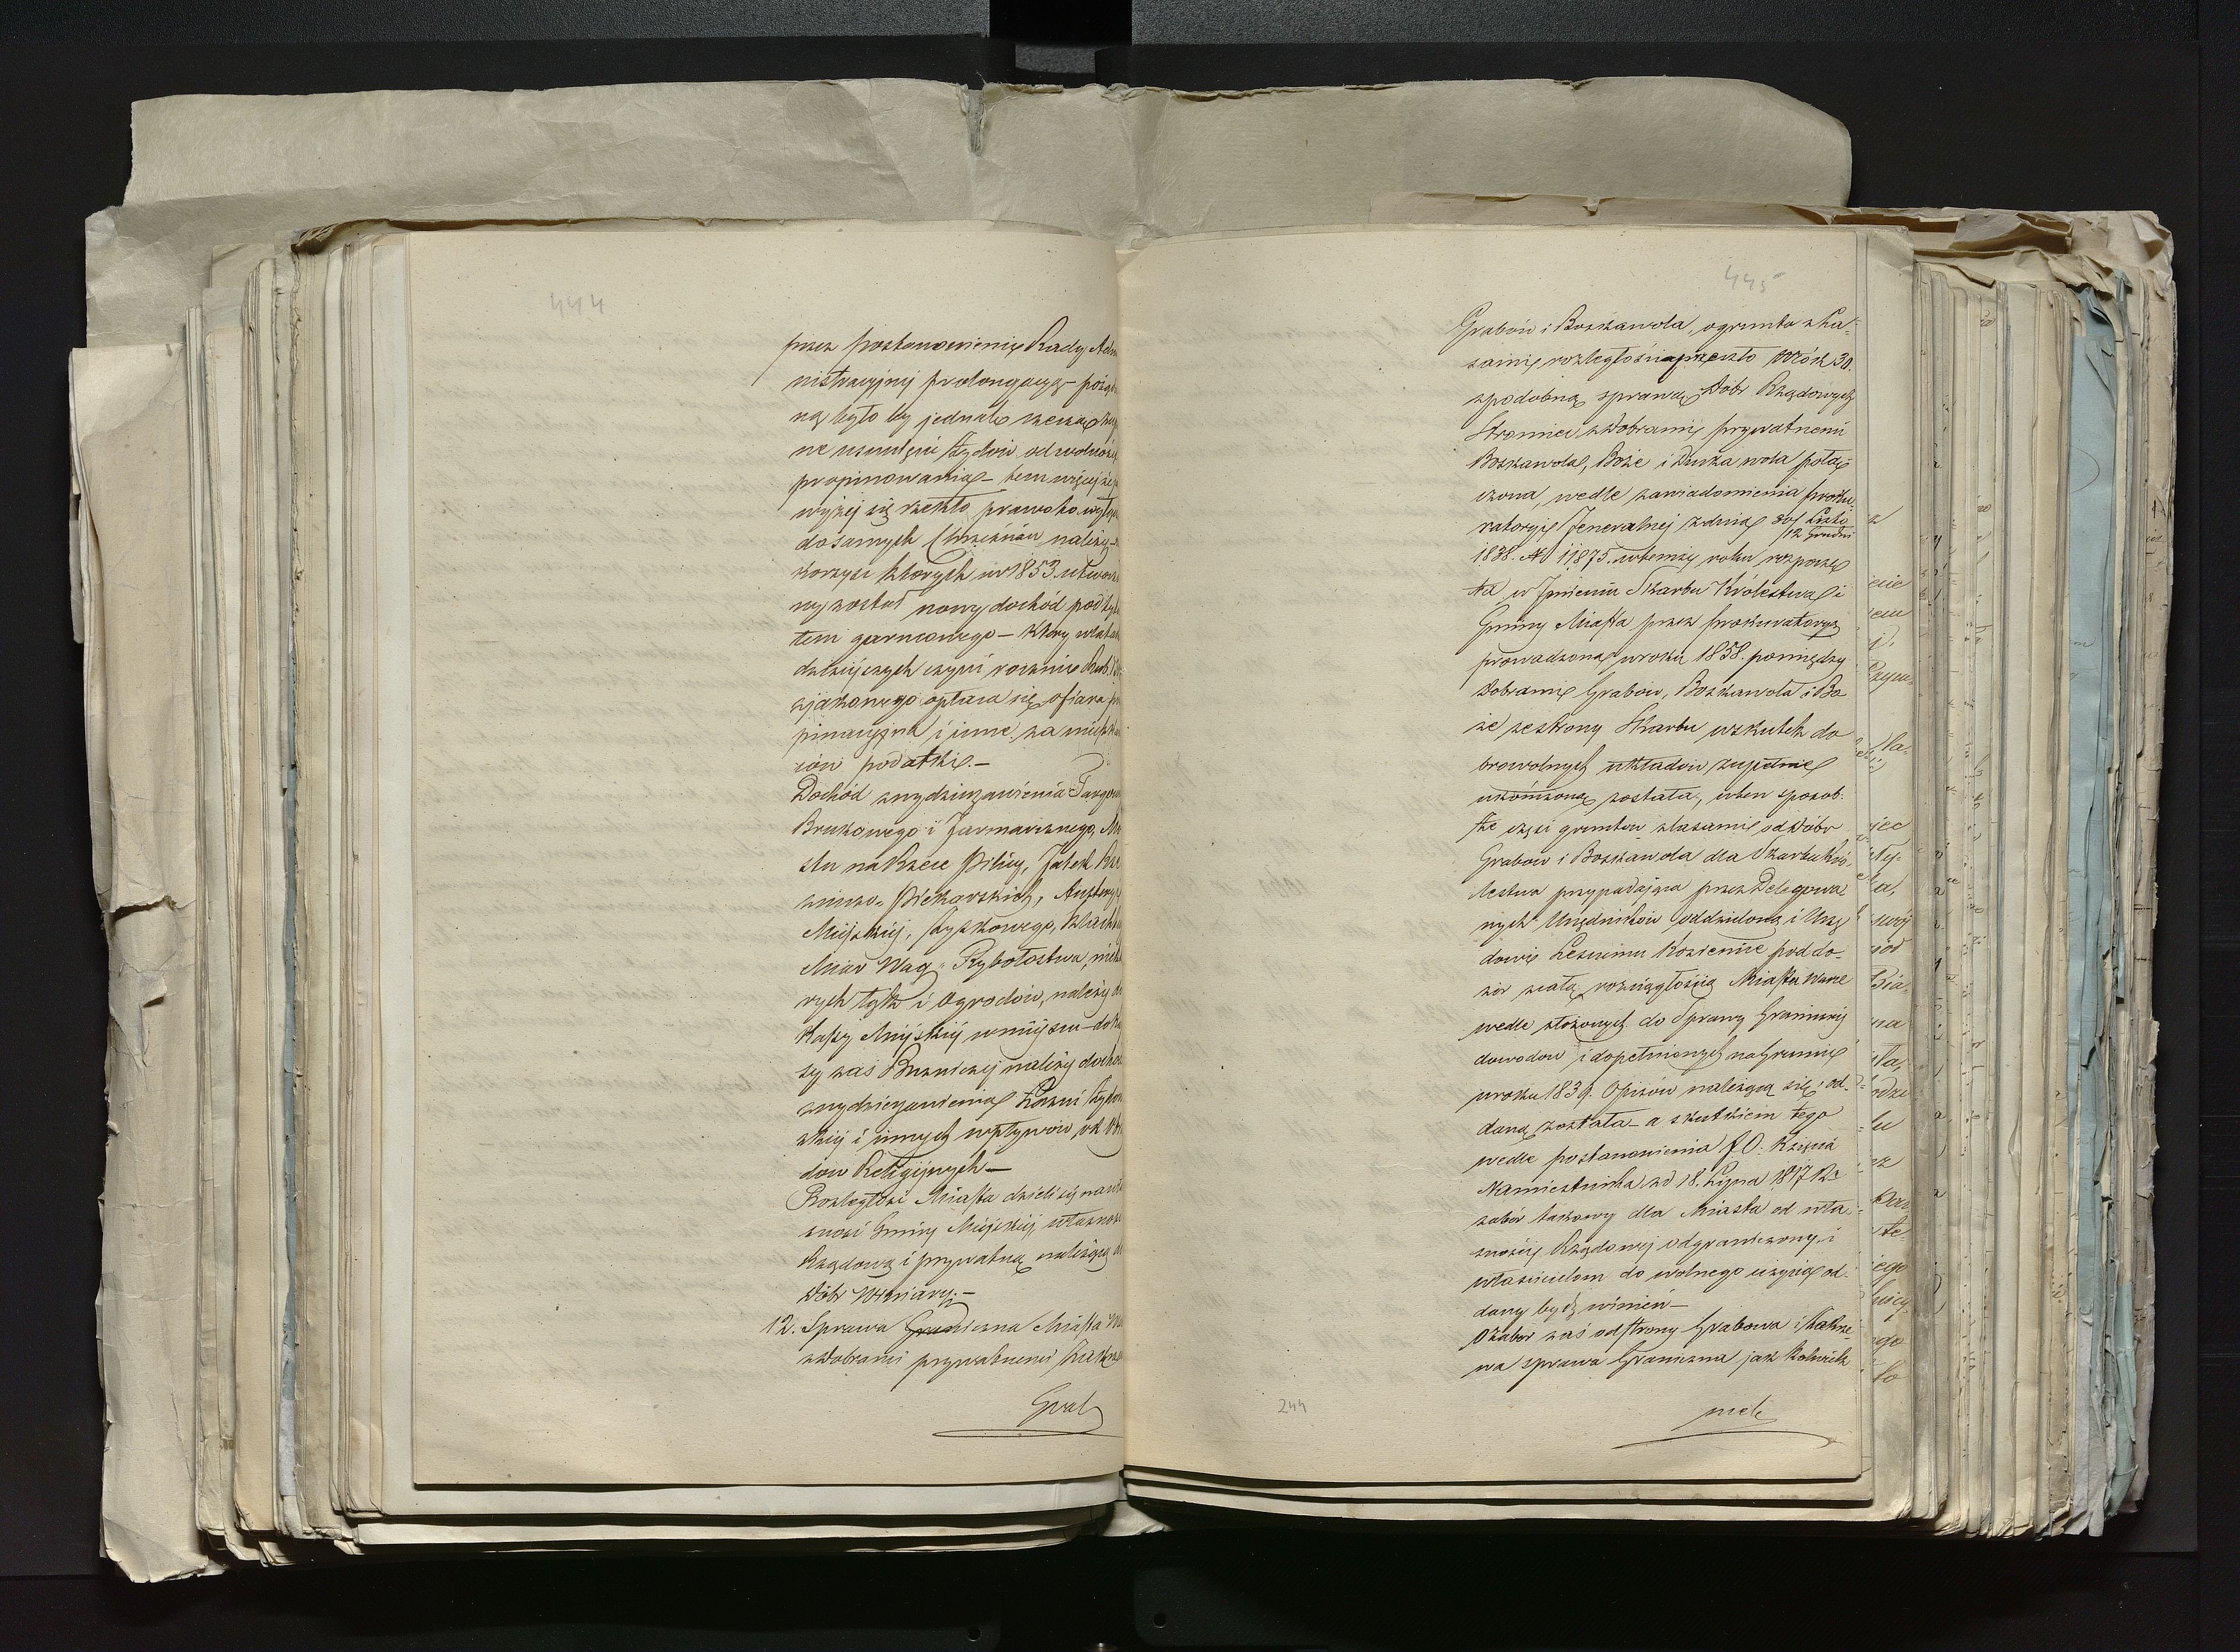 444
przez postanowienie Rady Adm
nistracyjnej prolongacyą – pożąda
ną było by jednak rzeczą
ne usunięcie Żydów od wolności
propinowania – tem więcej że ja
wyżej się rzekło prawo to wyłącz
do samych Chrześcian należy –
korzyści których w r 1853 utworzo
ny został nowy dochód pod tytu
tem garncowego – który
dzisiejszych czyni rocznie Rub.
z jakowego opłaca się ofiara pro
pinacyjna i inne za mieszkań
ców podatki. –
Dochód z wydzierzawienia Targow
Brukowego i Jarmarcznego, Mo
stu na Rzece Pilicy, Jatek Rze
zniczo- Piekarskich, Austeryi
Miejskiej,
Miar Wag, Rybołostwa, niektó
rych łąk i Ogrodów, należy do
Kassy Miejskiej w miejscu – do Ka
sy zaś Bożniczej należy dochód
z wydzierżawienia Łazni Żydow
skiej i innych wpływów
dow Religijnych –
Rozległość Miasta dzieli się na wła
sność Gminy Miejskiej, własność
Rządową i prywatną należącą do
Dóbr Winiary. –
12. Sprawa Graniczna Miasta Wa
z Dobrami prywatnemi Zakrze
Grab
445
Grabów i Boskawola, o grunta z La-
sami rozległości przeszło Włók 30.
z podobną sprawą Dóbr Rządowych
Stromiec z Dobrami prywatnemi
Boskawola, Boże i Ducka wola połą-
czona, wedle zawiadomienia Proku
ratoryi Jeneralnej z dnia 30 Listo
12 Grudni
1838. N 11,875. w temże roku rozpoczę
ta w Imieniu Skarbu Królestwa i
Gminy Miasta przez Prokuratoryą
prowadzoną w roku 1858. pomiędzy
Dobrami Grabów, Boskawola i Bo
że ze strony Skarbu wskutek do
browolnych układów zupełnie
ukończoną została, w ten sposob.
że część gruntów z lasami od Dóbr
Grabów i Boskawola dla Skarbu Kró-
lestwa przypadająca przez Delegowa
nych Urzędników oddzieloną i Urzę
dowi Leśnemu Kozienice pod do-
zór z całą rozciągłością Miasta Warce
wedle złożonych do Sprawy Granicznej
dowodów i dopełnionych na Gruncie
w roku 1839. Opisów należącą się, od-
daną została – a skutkiem tego
wedle postanowienia J.O. Księcia
Namiestnika z d 18. Lipca 1817 Ra
zabór takowy dla Miasta od wła-
sności Rządowej odgraniczony i
właścicielom do wolnego użycia od-
dany bydź winien –
O zabor zaś od strony Grabowa i Zakrze-
wa sprawa Graniczna jak kolwiek
244
wede